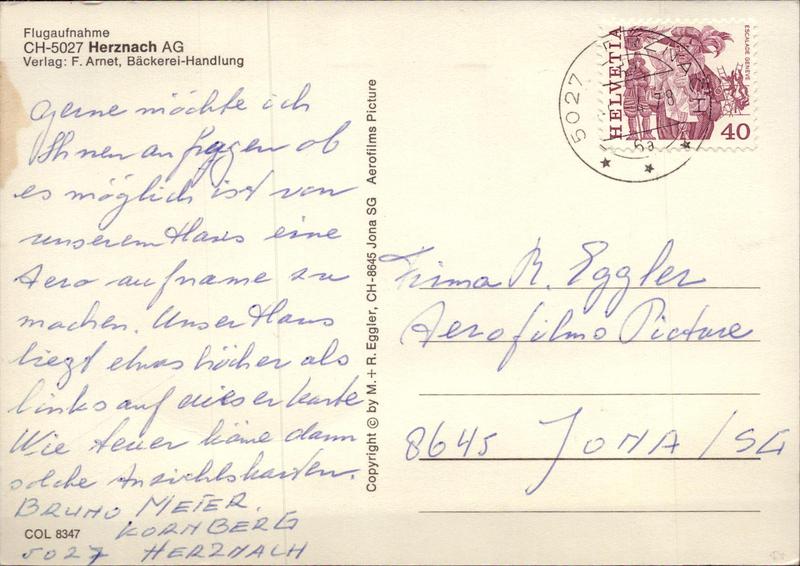 Flugaufnahme
CH-5027 Herznach AG
Verlag: F. Arnet, Bäckerei-Handlung
Gerne möchte ich
Ihnen anfragen ob
es möglich ist von
unserem Haus eine
Aero aufname zu
machen. Unser Haus
liegt etwas höcher als
links auf dieser Karte
Wie teuer käme dann
solche Ansichtskarten.
BRUNO MEIER.
KORNBERG
5027 HERZNACH
COL 8347
Copyright © by M. + R. Eggler, CH-8645 Jona SG Aerofilms Picture
HELVETIA
ESCALADE GENEVE
40
5027 HERZNACH
Firma R. Eggler
Aerofilms Picture
8645 JONA/SG